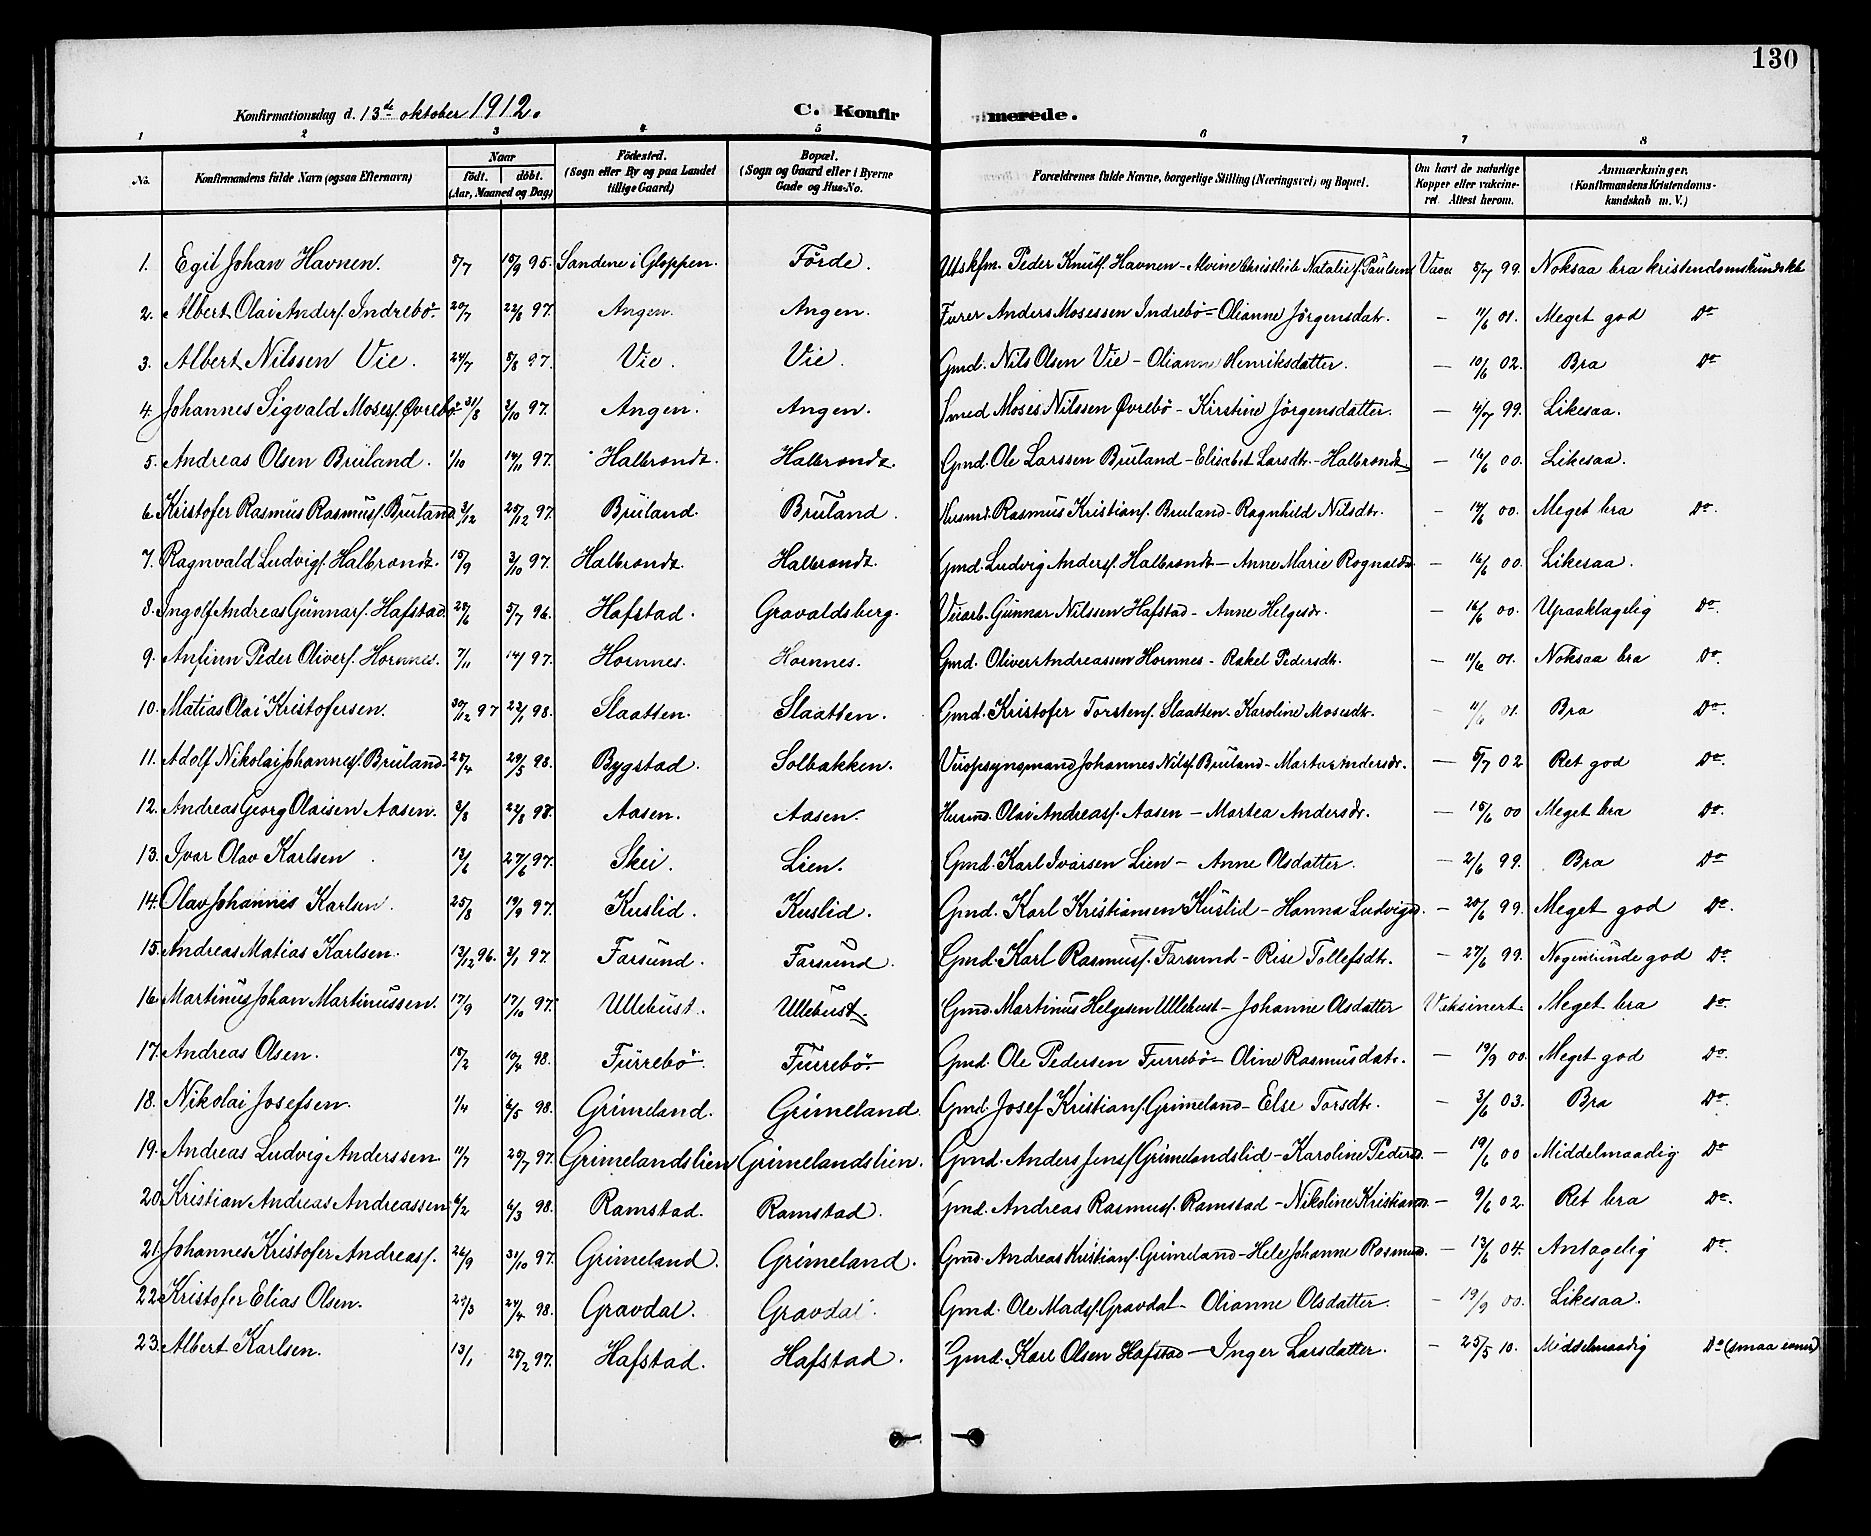 130
Konfirmationsdag d. 13de oktober 1912.
C. Konfirmerede.
1 2 3 4 5 6 7 8
No. Konfirmandens fulde Navn (ogsaa Efternavn) Naar födt. döbt. (Aar, Maaned og Dag) Födested. (Sogn eller By og paa Landet tillige Gaard) Bopæl. (Sogn og Gaard eller i Byerne Gade og Hus-No. Forældrenes fulde Navne, borgerlige Stilling (Næringsvei) og Bopæl. Om havt de naturlige Kopper eller vakcineret. Attest herom. Anmærkninger, (Konfirmandens Kristendomskundskab m. V.)
1. Egil Johan Havnen. 5/7 15/9 95. Sandene i Gloppen. Förde. Utskfm. Peder Knuts. Havnen - Alvine Christense Natalie f. Paulsen Vacc 5/7 99. Noksaa bra kristendomskundskb
2. Albert Olai Anders. Indrebö. 20/7 22/8 97. Angen. Angen. Furer Anders Mosessen Indrebö - Olianne Jörgensdatr. - 11/6 01. Meget god Do
3. Albert Nilssen Vie. 24/7 5/8 97. Vie. Vie. Gmd. Nils Olsen Vie - Olianne Henriksdatter. - 10/6 02. Bra Do
4. Johannes Sigvald Moses. Øvrebö 31/8 3/10 97. Angen. Angen. Smed Moses Nilssen Øvrebö - Kirstine Jörgensdatter. - 4/7 99. Likesaa.
5. Andreas Olsen Bruland. 1/10 14/11 97. Halbrondt. Halbrondt. Gmd. Ole Larssen Bruland - Elisabet Larsdtr. - Halbrondt - 16/6 00. Likesaa.
6. Kristofer Rasmus Rasmus. Bruland 3/12 25/12 97. Bruland. Bruland. Husmd. Rasmus Kristians. Bruland - Ragnhild Nilsdtr. - 14/6 00. Meget bra Do.
7. Ragnvald Ludvigs. Halbrondt. 15/9 3/10 97. Halbrondt. Halbrondt. Gmd. Ludvig Anders. Halbrondt - Anne Marie Rognaldsd - 16/6 00. Likesaa.
8. Ingolf Andreas Gunnars. Hafstad. 28/6 5/7 96. Hafstad. Gravaldsberg. Veiarb. Gunnar Nilssen Hafstad - Anne Helgesdr. - 16/6 00. Upaaklagelig Do.
9. Anfinn Peder Olivers. Hornnes. 7/11 14/ 97. Hornnes. Hornnes. Gmd. Oliver Andreassen Hornnes - Rakel Pedersdtr. - 11/6 01. Noksaa bra Do.
10. Matias Olai Kristofersen. 30/12 97 22/1 98. Slaatten. Slaatten. Gmd. Kristofer Torstens. Slaatten. Karoline Mosesdr. - 11/6 01. Bra Do.
11. Adolf Nikolai Johannes. Bruland. 28/4 29/5 98. Bygstad. Solbakken. Veiopsynsmand Johannes Nils. Bruland - Marta Andersdr. - 5/7 02 Ret god Do.
12. Andreas Georg Olaisen Aasen. 3/8 22/8 98. Aasen. Aasen. Husmd. Olai Andreas. Aasen - Martea Andersdr. - 15/6 00 Meget bra Do.
13. Ivar Olav Karlsen 13/6 27/6 97. Skei. Lien. Gmd. Karl Ivarsen Lien - Anne Olsdatter. - 2/6 99. Bra Do
14. Olav Johannes Karlsen. 25/8 19/9 97. Kuslid. Kuslid. Gmd. Karl Kristiansen Kuslid - Hanna Ludvigsd. - 20/6 99. Meget god Do.
15. Andreas Matias Karlsen. 13/12 96. 3/1 97. Farsund. Farsund. Gmd. Karl Rasmus. Farsund - Rise Tollefsdtr. - 27/6 99. Nogenlunde god Do.
16. Martinus Johan Martinussen. 17/9 17/10 97. Ullebust. Ullebust. Gmd. Martinus Helgesen Ullebust - Johanne Olsdatter Vaksinert. Meget bra Do.
17. Andreas Olsen. 15/2 10/4 98. Furrebö. Furrebö. Gmd. Ole Pedersen Furrebö - Oline Rasmusdatr. - 19/9 00. Meget god Do.
18. Nikolai Josefsen. 1/4 6/5 98. Grimeland. Grimeland. Gmd. Josef Kristians. Grimeland - Else Torsdtr. - 3/6 03. Bra Do.
19. Andreas Ludvig Anderssen. 11/7 25/7 97. Grimelandslien Grimelandslien. Gmd. Anders Jens. Grimelandslid - Karoline Pedersd. - 19/6 00 Middelmaadig Do
20. Kristian Andreas Andreassen 6/2 6/3 98. Ramstad. Ramstad. Gmd. Andreas Rasmus. Ramstad - Nikoline Kristiansd. - 9/6 02. Ret bra Do.
21. Johannes Kristofer Andreas. 26/9 31/10 97. Grimeland. Grimeland. Gmd. Andreas Kristians. Grimeland - Hele Johanne Rasmusd. - 13/6 04. Antagelig Do.
22. Kristofer Elias Olsen. 25/3 24/4 98. Gravdal. Gravdal. Gmd. Ole Mads. Gravdal - Olianne Olsdatter. - 19/9 00. Likesaa.
23. Albert Karlsen. 13/1 28/2 97. Hafstad. Hafstad. Gmd. Karl Olsen Hafstad - Inger Larsdatter. - 25/5 10. Middelmaadig Do (smaa evner)